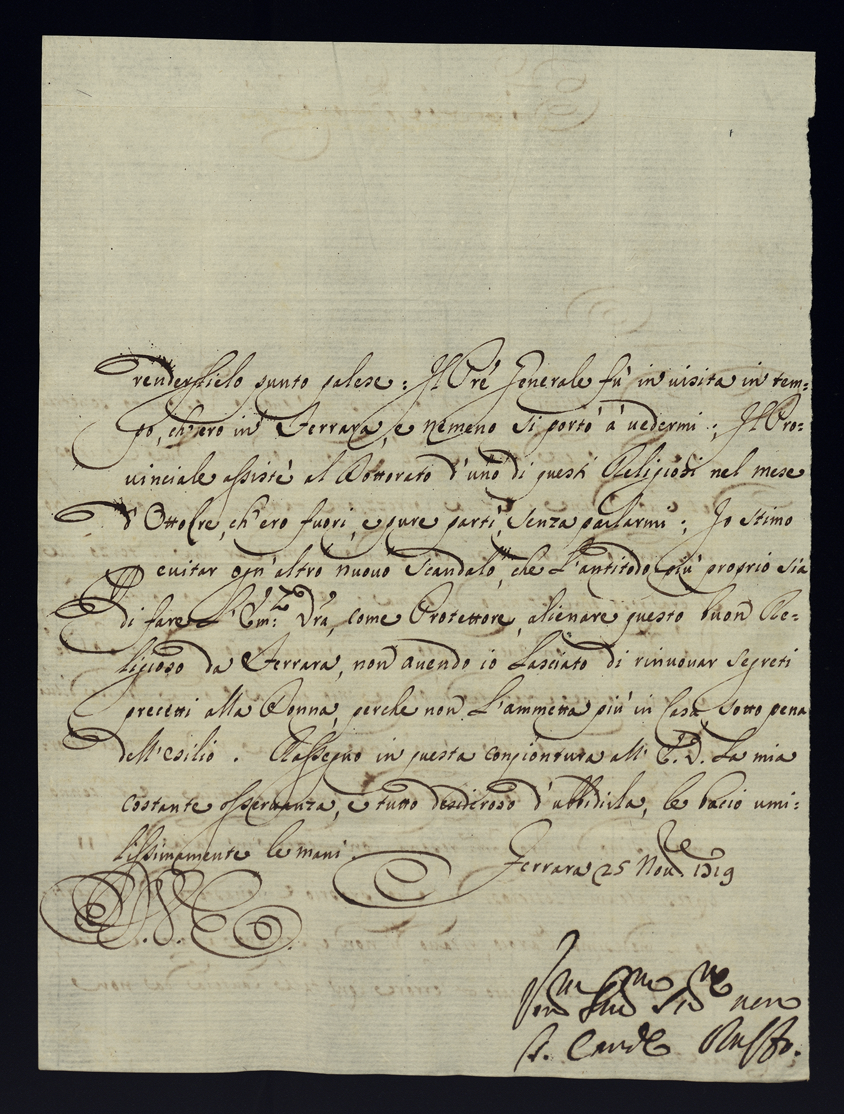 rendersfielo punto palese: Il Prê Generale fù in uisita in tem=
po, ch'ero in Ferrara, e nemeno si portò à uedermi; Il Pro=
uinciale assistè al Dottorato d'uno di questi Religiosi nel mese
d'Ottobre, ch'ero fuori, e pure partì senza parlarmi; Io stimo
P euitar ogn'altro nuouo scandalo, che l'antitodo più proprio sia
di fare l'Em:ᶻᵃ Vrã, come Protettore, alienare questo buon Re=
ligioso da Ferrara, non auendo io lasciato di rinuouar segreti
precetti alla Donna, perche non l'ammetta più in Casa sotto pena
dell'esilio. Rassegno in questa congiontura all' E. V. la mia
costante osseruanza, e tutto desideroso d'ubbidirla, le bacio umi=
lissimamente le mani.
Ferrara 25 Nou.ʳᵉ 1719
V. E.
T. Card.ˡᵉ Ruffo.